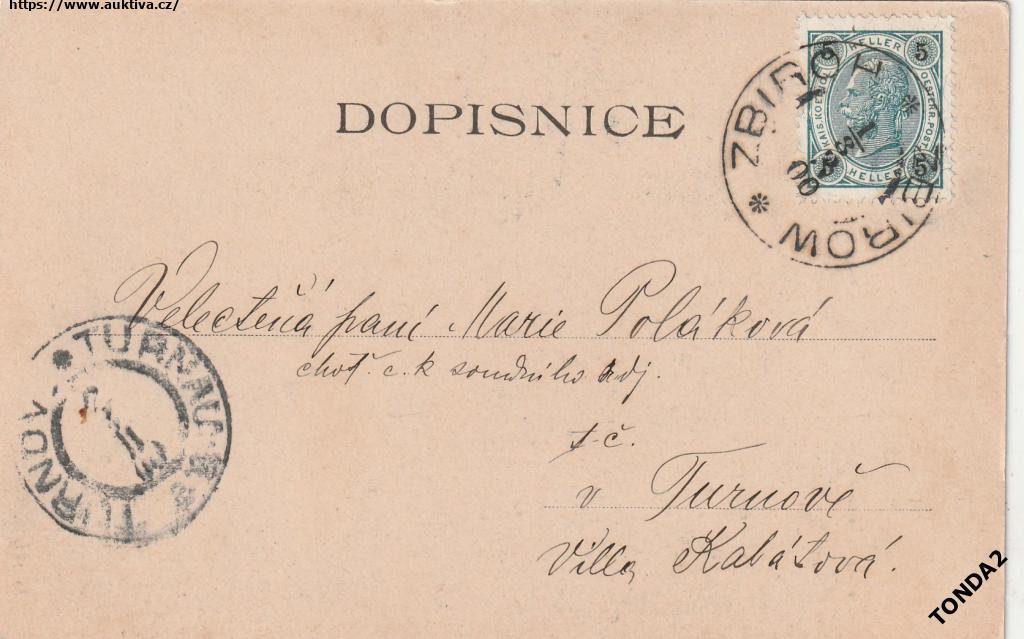 https://www.auktiva.cz/
DOPISNICE
5 HELLER 5
KAIS. KOE
OESTERR. POST
5 HELLER 5
ZBIROW
00
Velectěná paní Marie Poláková
choť. c. k soudního adj.
t. č.
v Turnově
Villa Kabátová.
TURNAU
TURNOV
TONDA2